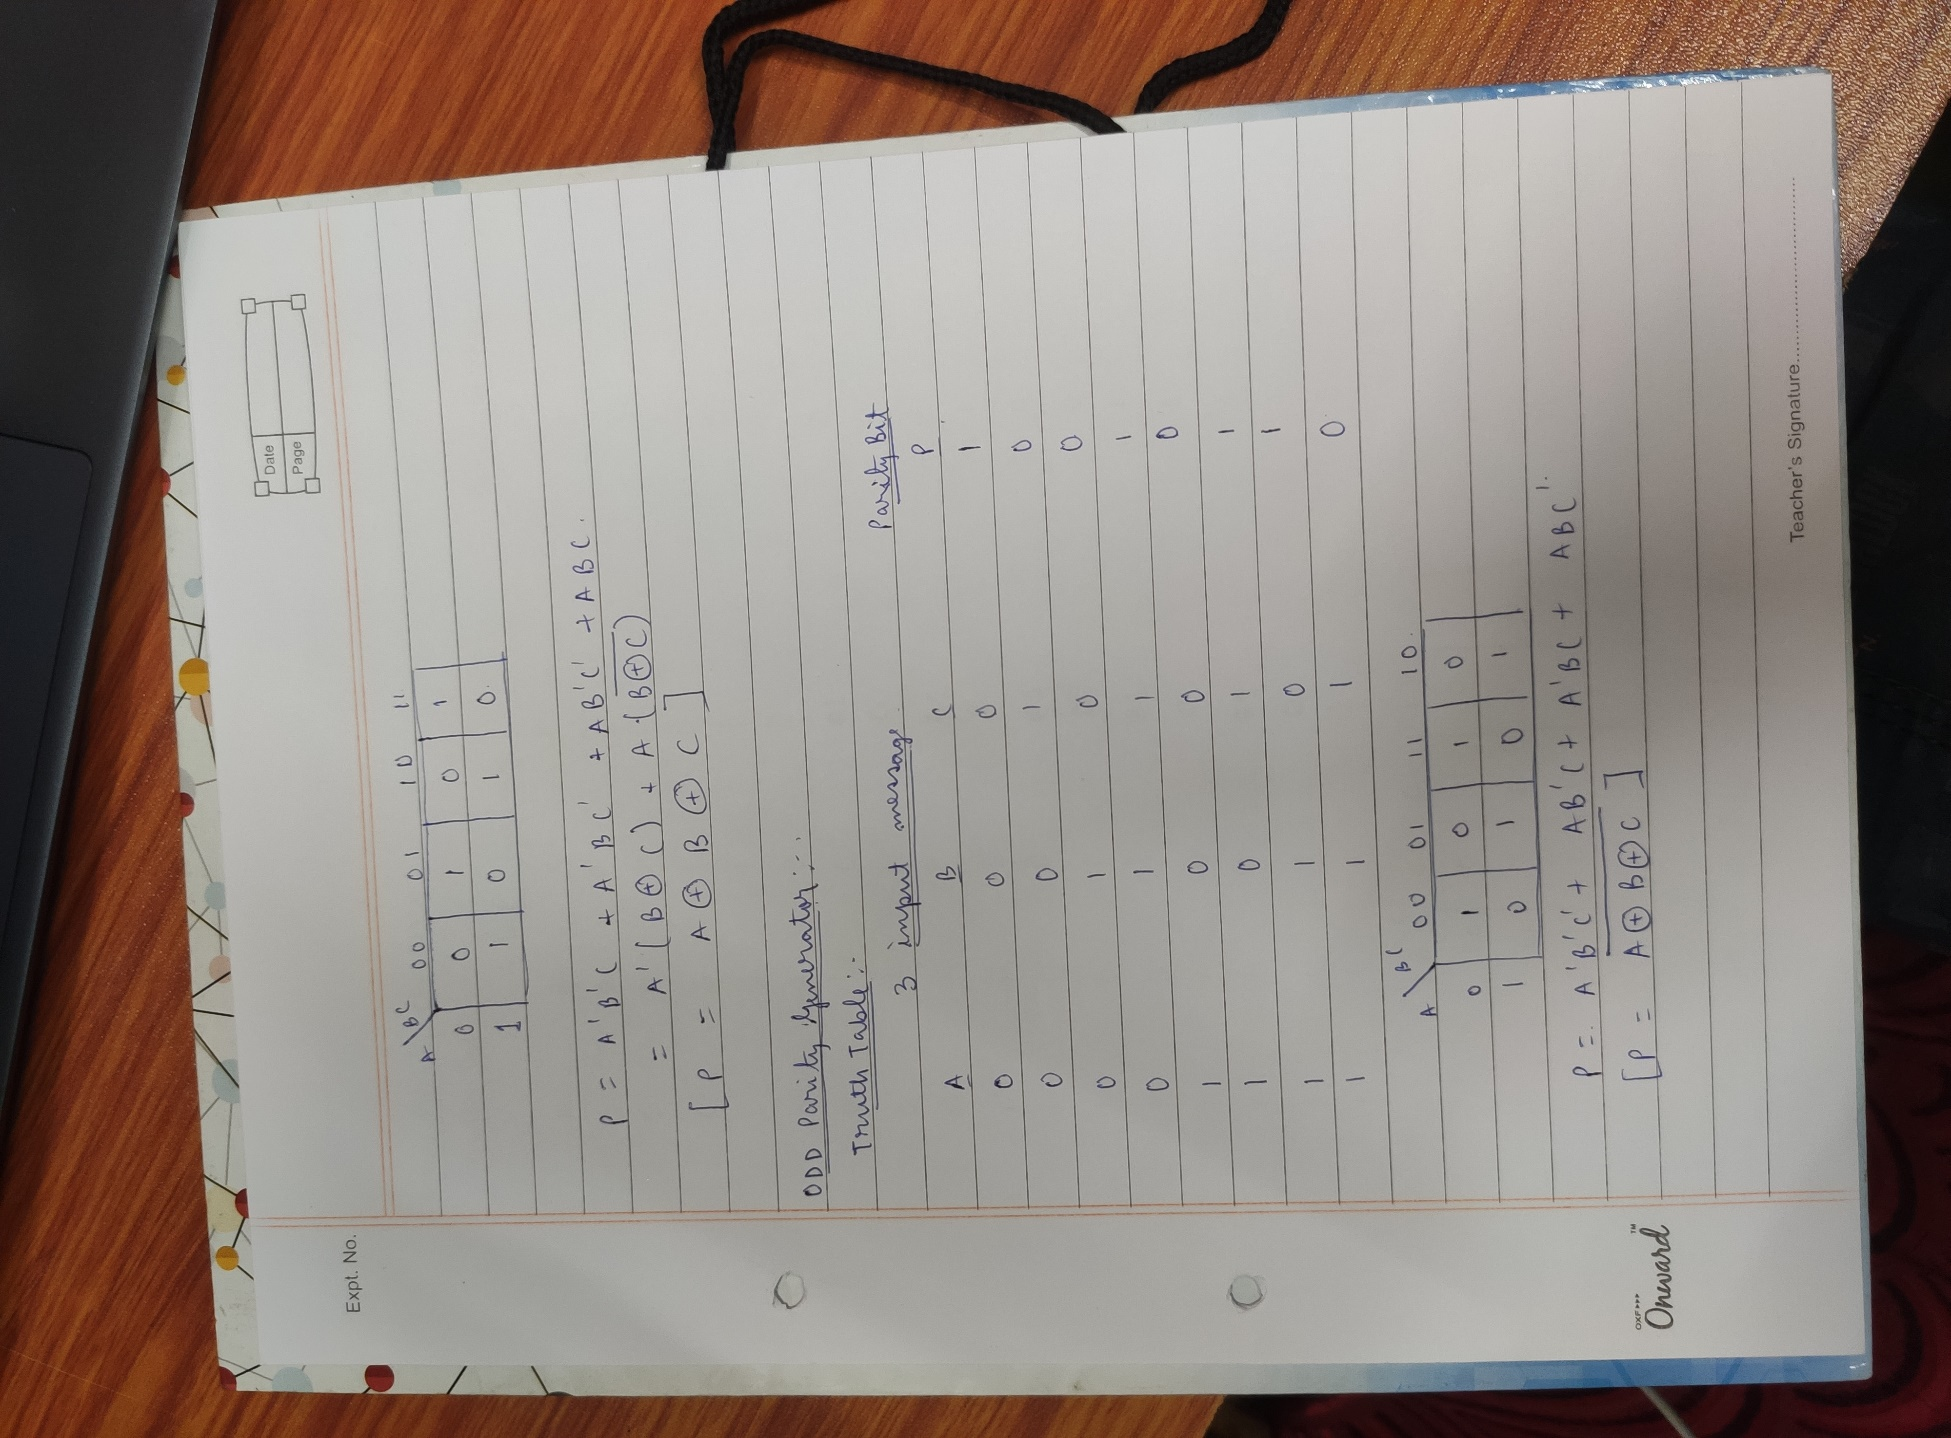 Date
Page
Expt. No.
A \ BC 00 01 10 11
0 0 1 0 1
1 1 0 1 0
P = A'B'C + A'BC' + AB'C' + ABC.
= A'(B⊕C) + A(B̅⊕̅C̅)
[P = A⊕B⊕C]
ODD Parity Generator:-
Truth Table:-
3 input message Parity Bit
A B C P
0 0 0 1
0 0 1 0
0 1 0 0
0 1 1 1
1 0 0 0
1 0 1 1
1 1 0 1
1 1 1 0
A \ BC 00 01 11 10
0 1 0 1 0
1 0 1 0 1
P = A'B'C' + AB'C + A'BC + ABC'.
[P = A̅⊕̅B̅⊕̅C̅]
OXF
Onward™
Teacher's Signature